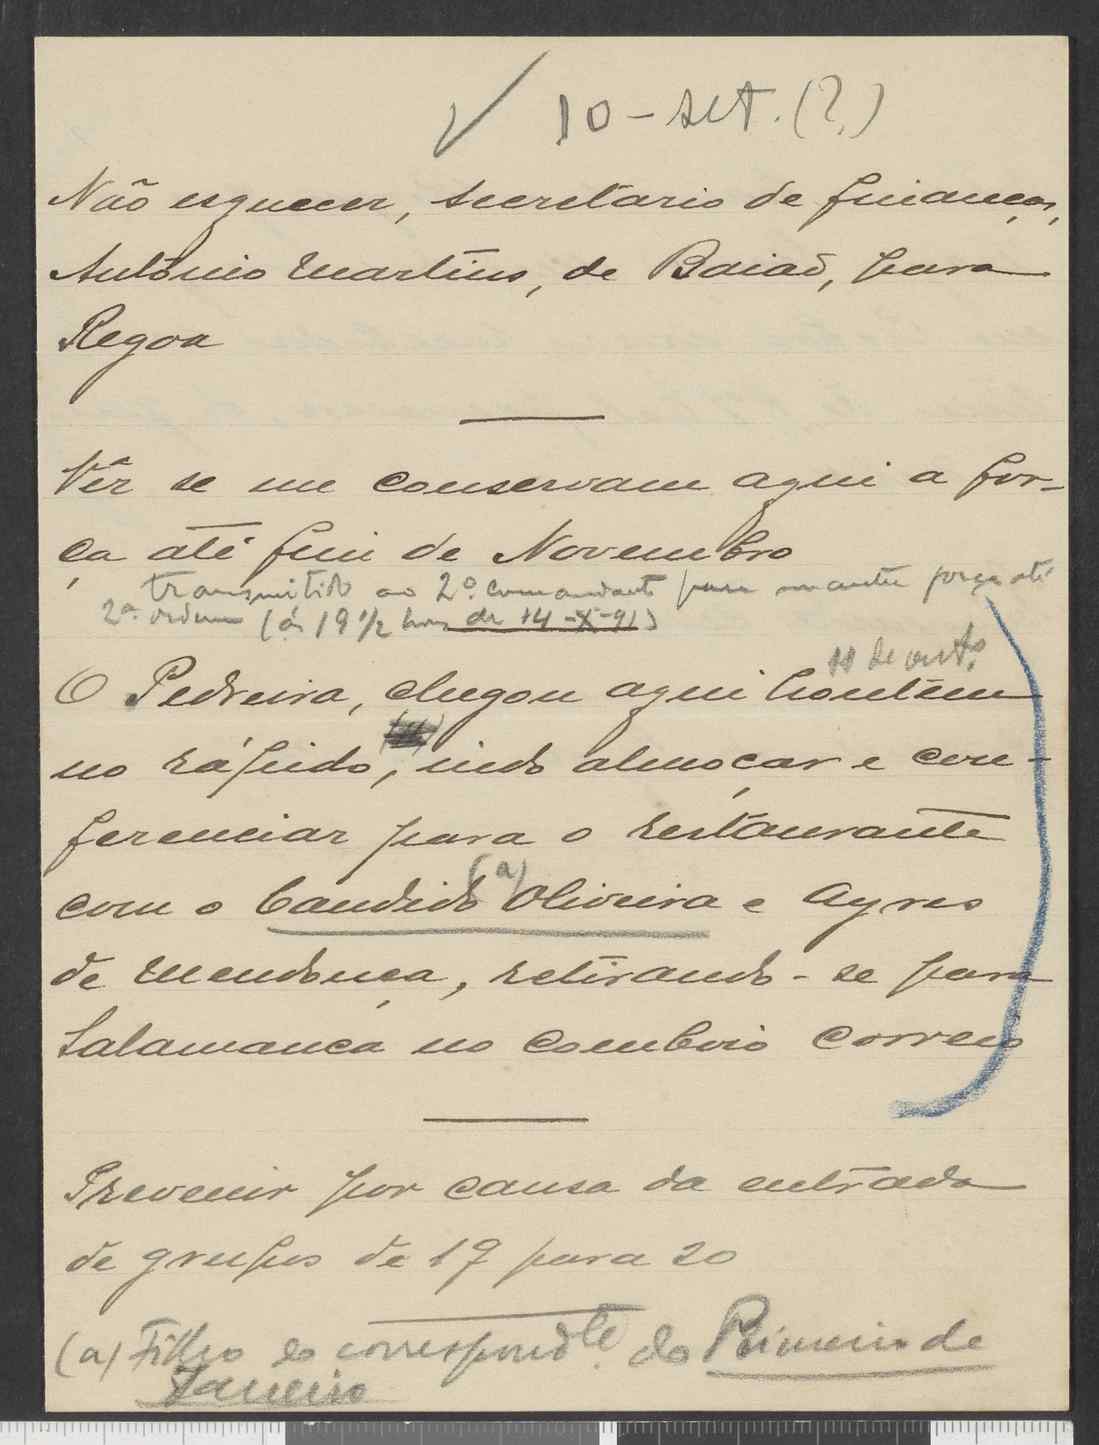 10 - set. (?)
Não esquecer, secretario de finanças,
António Martins, de Baiaõ, para
Regoa
Vêr se me conservam aqui a for-
ça até fim de Novembro
transmitido ao 2º comandante para manter força até
2ª ordem (ás 19 1/2 horas de 14-X-91)
11 de outº
O Pedreira, chegou aqui hontem
no rápido, indo almoçar e con-
ferenciar para o restaurante
com o Candido (a) Oliveira e Ayres
de Mendonça, retirando-se para
Salamanca no comboio correio
Prevenir por causa da entrada
de grupos de 19 para 20
(a) Filho do correspondte. do Primeiro de
Janeiro